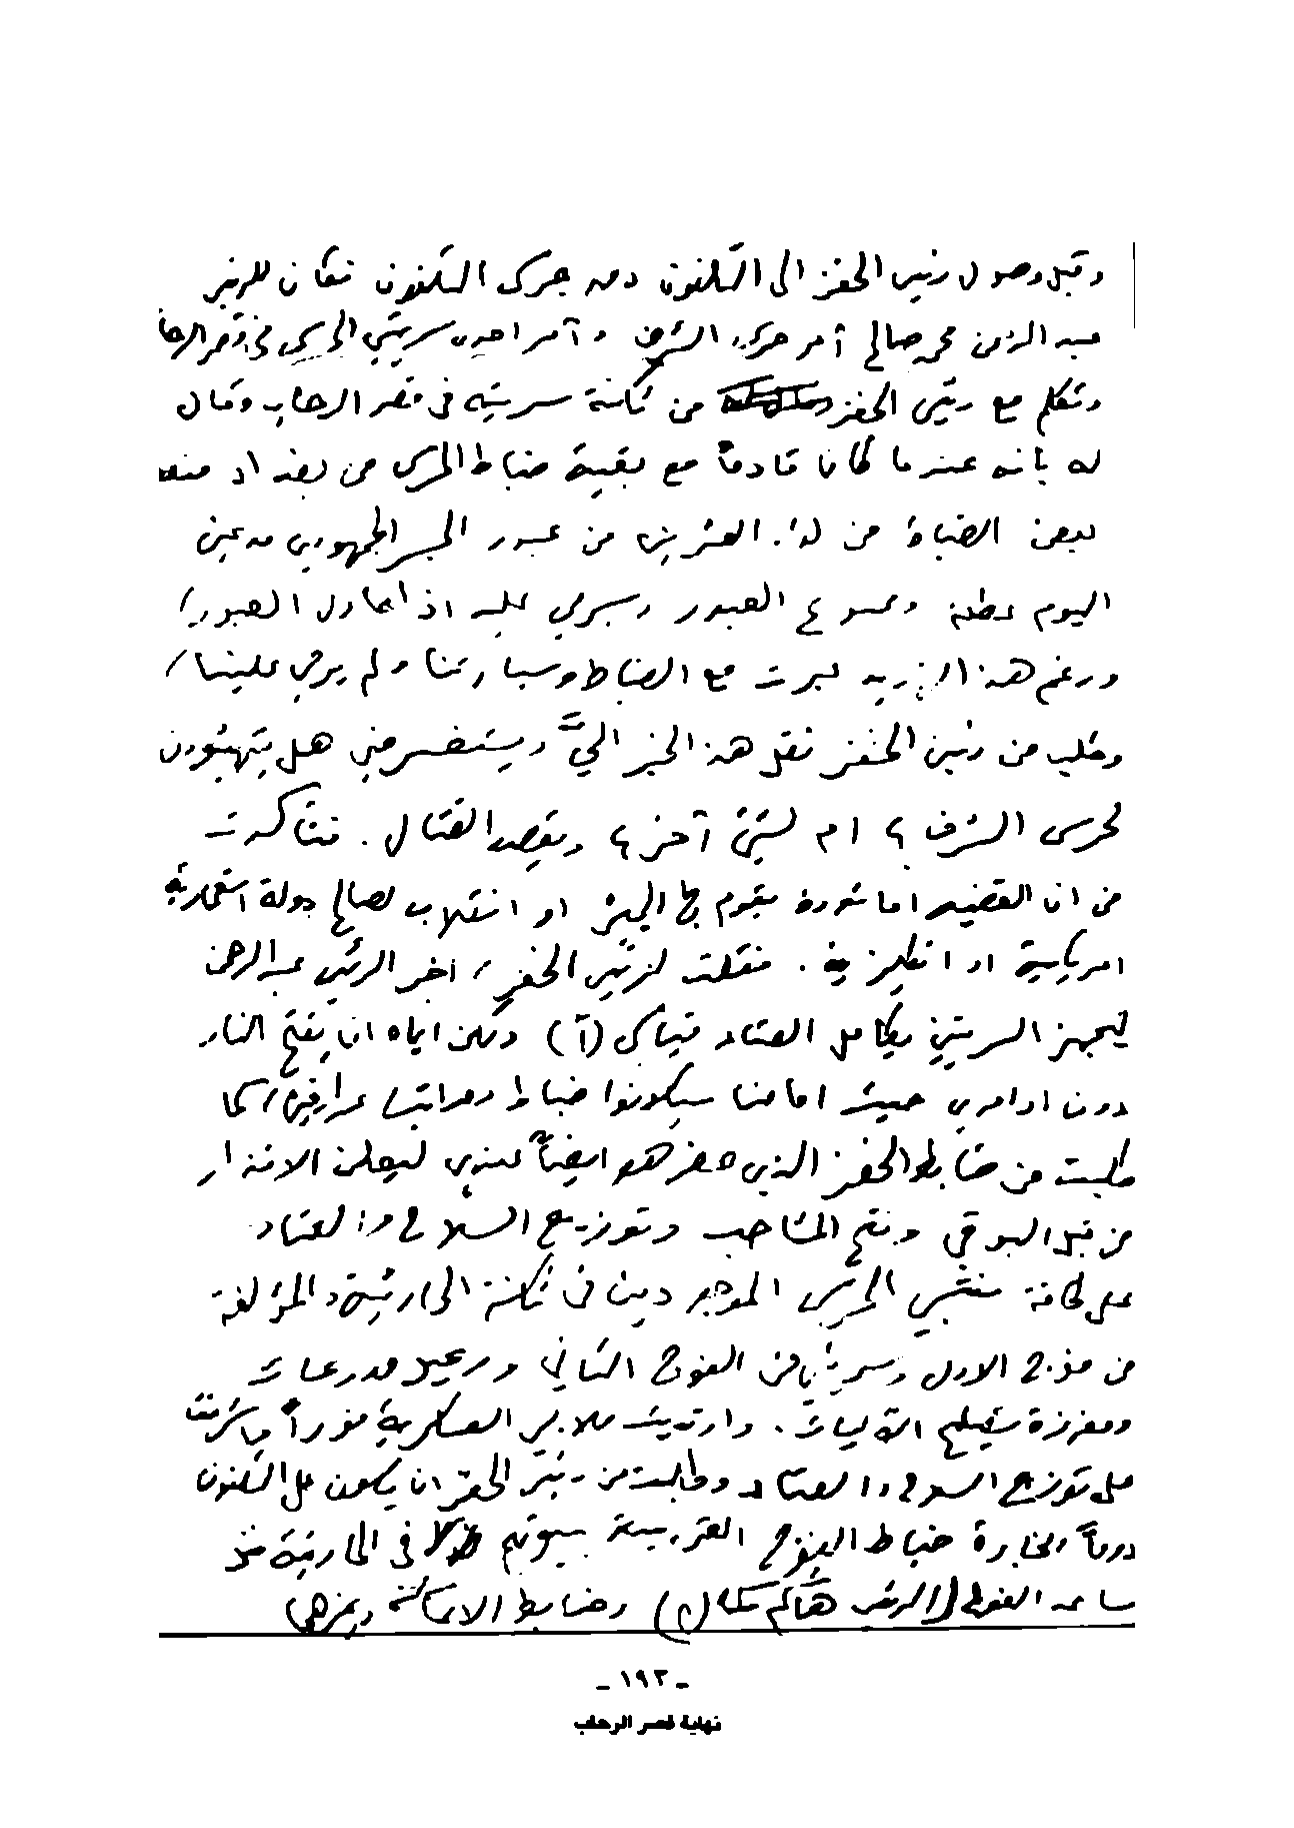 وقبل وصول رئيس الخفر الى التلفون دق جرس التلفون فكان الرئيس
عبد الرحمن محمد صالح آمر حرس الشرف وآمر احدى سريتي الحرس في قصر الرحاب
وتكلم مع رئيس الخفر من ثكنة سريته في قصر الرحاب وقال
له بانه عندما كان قادماً مع بقية ضباط الحرس من بغداد منعه
بعض الضباط من لواء العشرين من عبور الجسر الجمهوري مدعين
اليوم عطلة وممنوع العبور وسيرمي عليه اذا حاول العبور/
ورغم هذا عبرت مع الضباط وسيارتنا ولم يرمي علينا/
وطلب من رئيس الخفر نقل هذا الخبر اليَّ ويستفسر مني هل يتهيئون
لحرس الشرف ؟ ام لشيئ آخر ؟ ويقصد القتال . فتأكدت
من ان القضية اما ثورة يقوم بها الجيش او انقلاب لصالح دولة استعمارية
امريكية او انكليزية . فقلت لرئيس الخفر / اخبر الرئيس عبد الرحمن
ليجهز السريتين بكامل العتاد قياس (آ) ولكن اياه ان يفتح النار
دون اوامري حيث امامنا سيكونوا ضباط ومراتب عراقيين/ كما
طلبت من ضابط الخفر الذي حضر هو ايضاً عندي ليعلن الانذار
من قبل البوقي وفتح المشاجب وتوزيع السلاح والعتاد
على كافة منتسبي الحرس الموجودين في ثكنة الحارثية والمؤلفة
من فوج الاول وسريتين من الفوج الثاني ورعيل مدرعات
ومفرزة تصليح الآليات . وارتديت ملابس العسكرية فوراً واشرفت
على توزيع السلاح والعتاد وطلبت من رئيس الخفر ان يكون على التلفون
دوماً لمخابرة ضباط الفوج القريبة بيوتهم في الحارثية
مساعد الفوج (الرئيس ) وضابط الاعاشة
- ١٩٢ -
نهاية قصر الرحاب